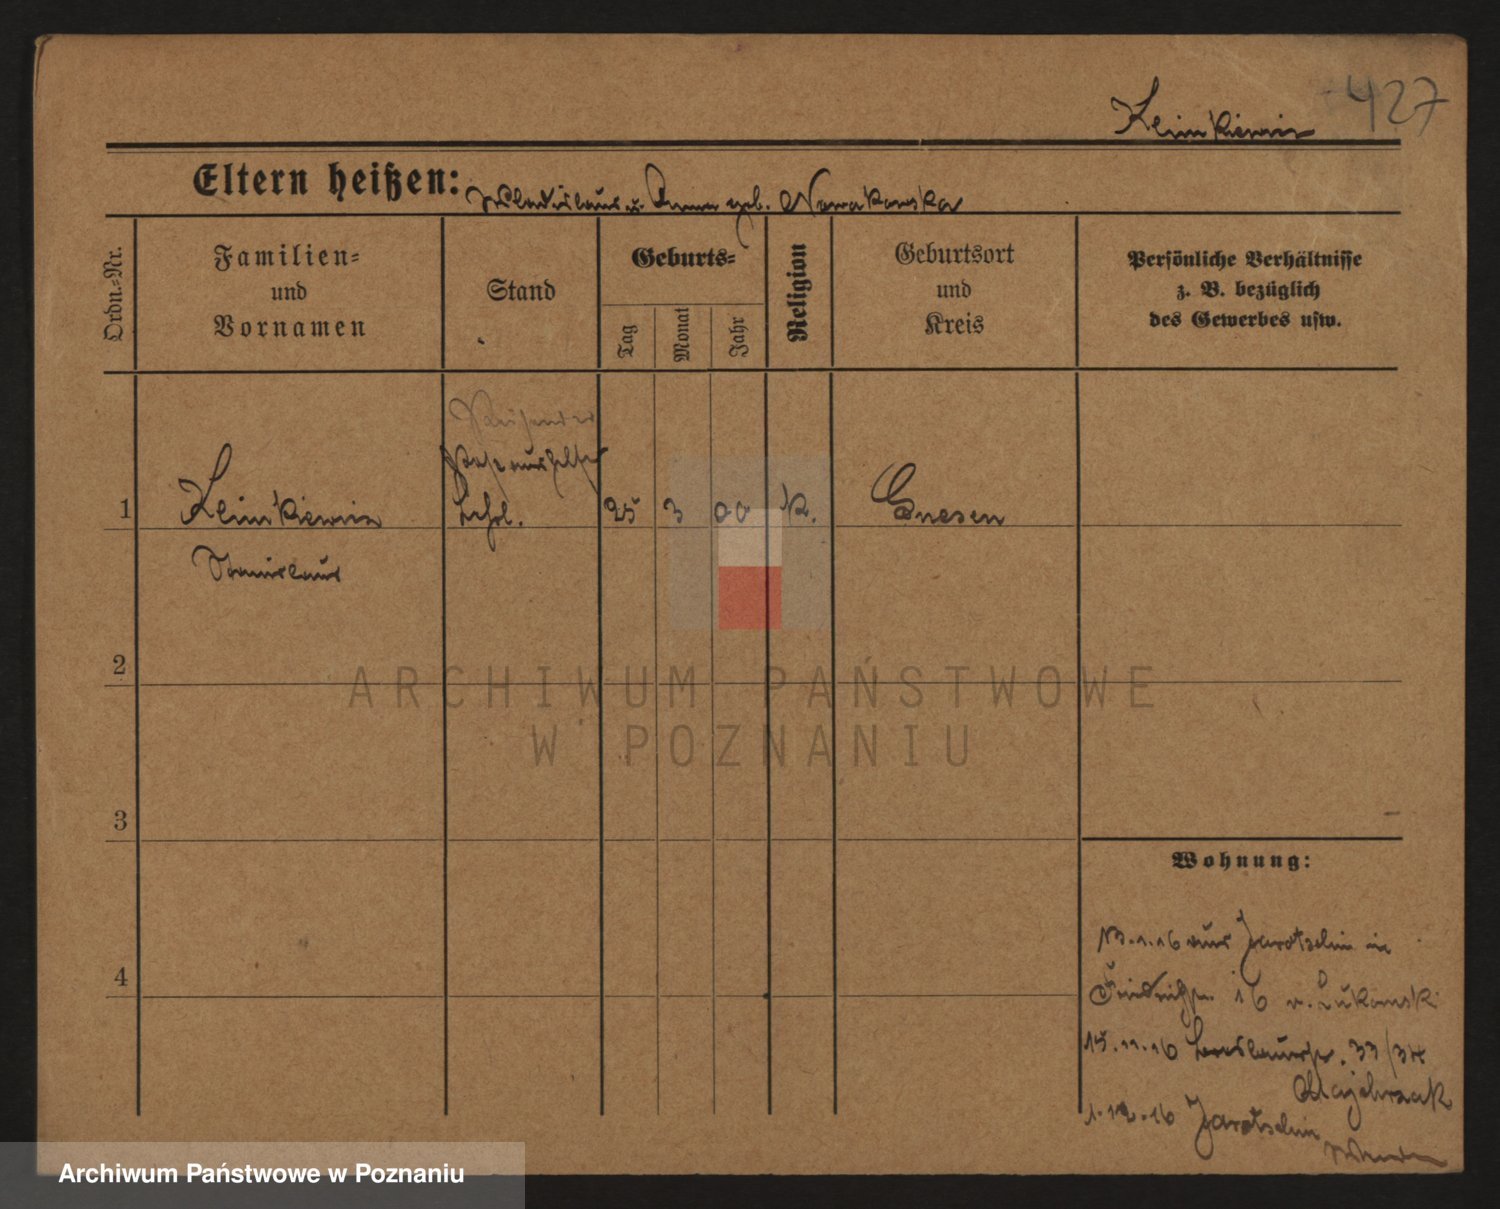 427
Klimkiewicz
Eltern heißen: Wladislaus u. Anna geb. Nowakowska
Ordn.-Nr.
Familien-
und
Vornamen
Stand
Geburts-
Tag
Monat
Jahr
Religion
Geburtsort
und
Kreis
Persönliche Verhältnisse
z. B. bezüglich
des Gewerbes usw.
Postaushelfer
1 Klimkiewicz 25 3 00 K. Gnesen
Stanislaus
2
3
4
Wohnung:
13.1.16 aus Jarotschin in
Friedrichstr. 16 v. Lukomski
15.11.16 33/34
Majchrzak
1.12.16 Jarotschin
ARCHIWUM PAŃSTWOWE
W POZNANIU
Archiwum Państwowe w Poznaniu